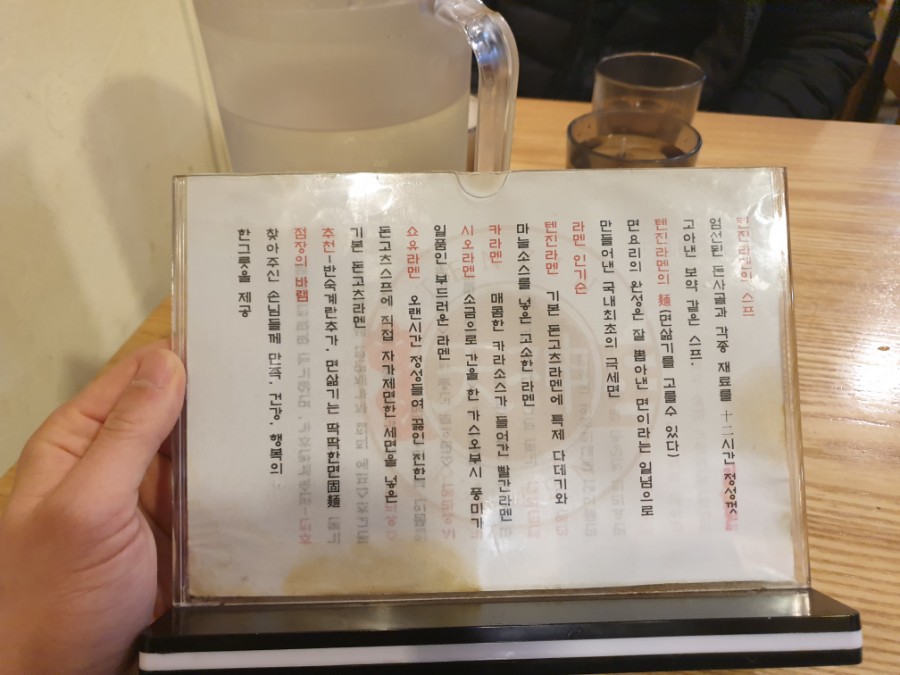 텐진라멘의 스프
엄선된 돈사골과 각종 재료를 十二시간 정성껏
고아낸 보약 같은 스프.
텐진라멘의 麵(면삶기를 고를수 있다)
면요리의 완성은 잘 뽑아낸 면이라는 일념으로
만들어낸 국내최초의 극세면
라멘 인기순
텐진라멘 기본 돈고츠라멘에 특제 다데기와
마늘소스를 넣은 고소한 라멘
카라멘 매콤한 카라소스가 들어간 빨간라멘
시오라멘 소금으로 간을 한 가스오부시 풍미가
일품인 부드러운 라멘
쇼유라멘 오랜시간 정성들여 끓인 진한
돈고츠스프에 직접 자가제면한 세면을 넣은
기본 돈고츠라멘
추천-반숙계란추가, 면삶기는 딱딱한면固麵
점장의 바램
찾아주신 손님들께 만족, 건강, 행복의
한그릇을 제공